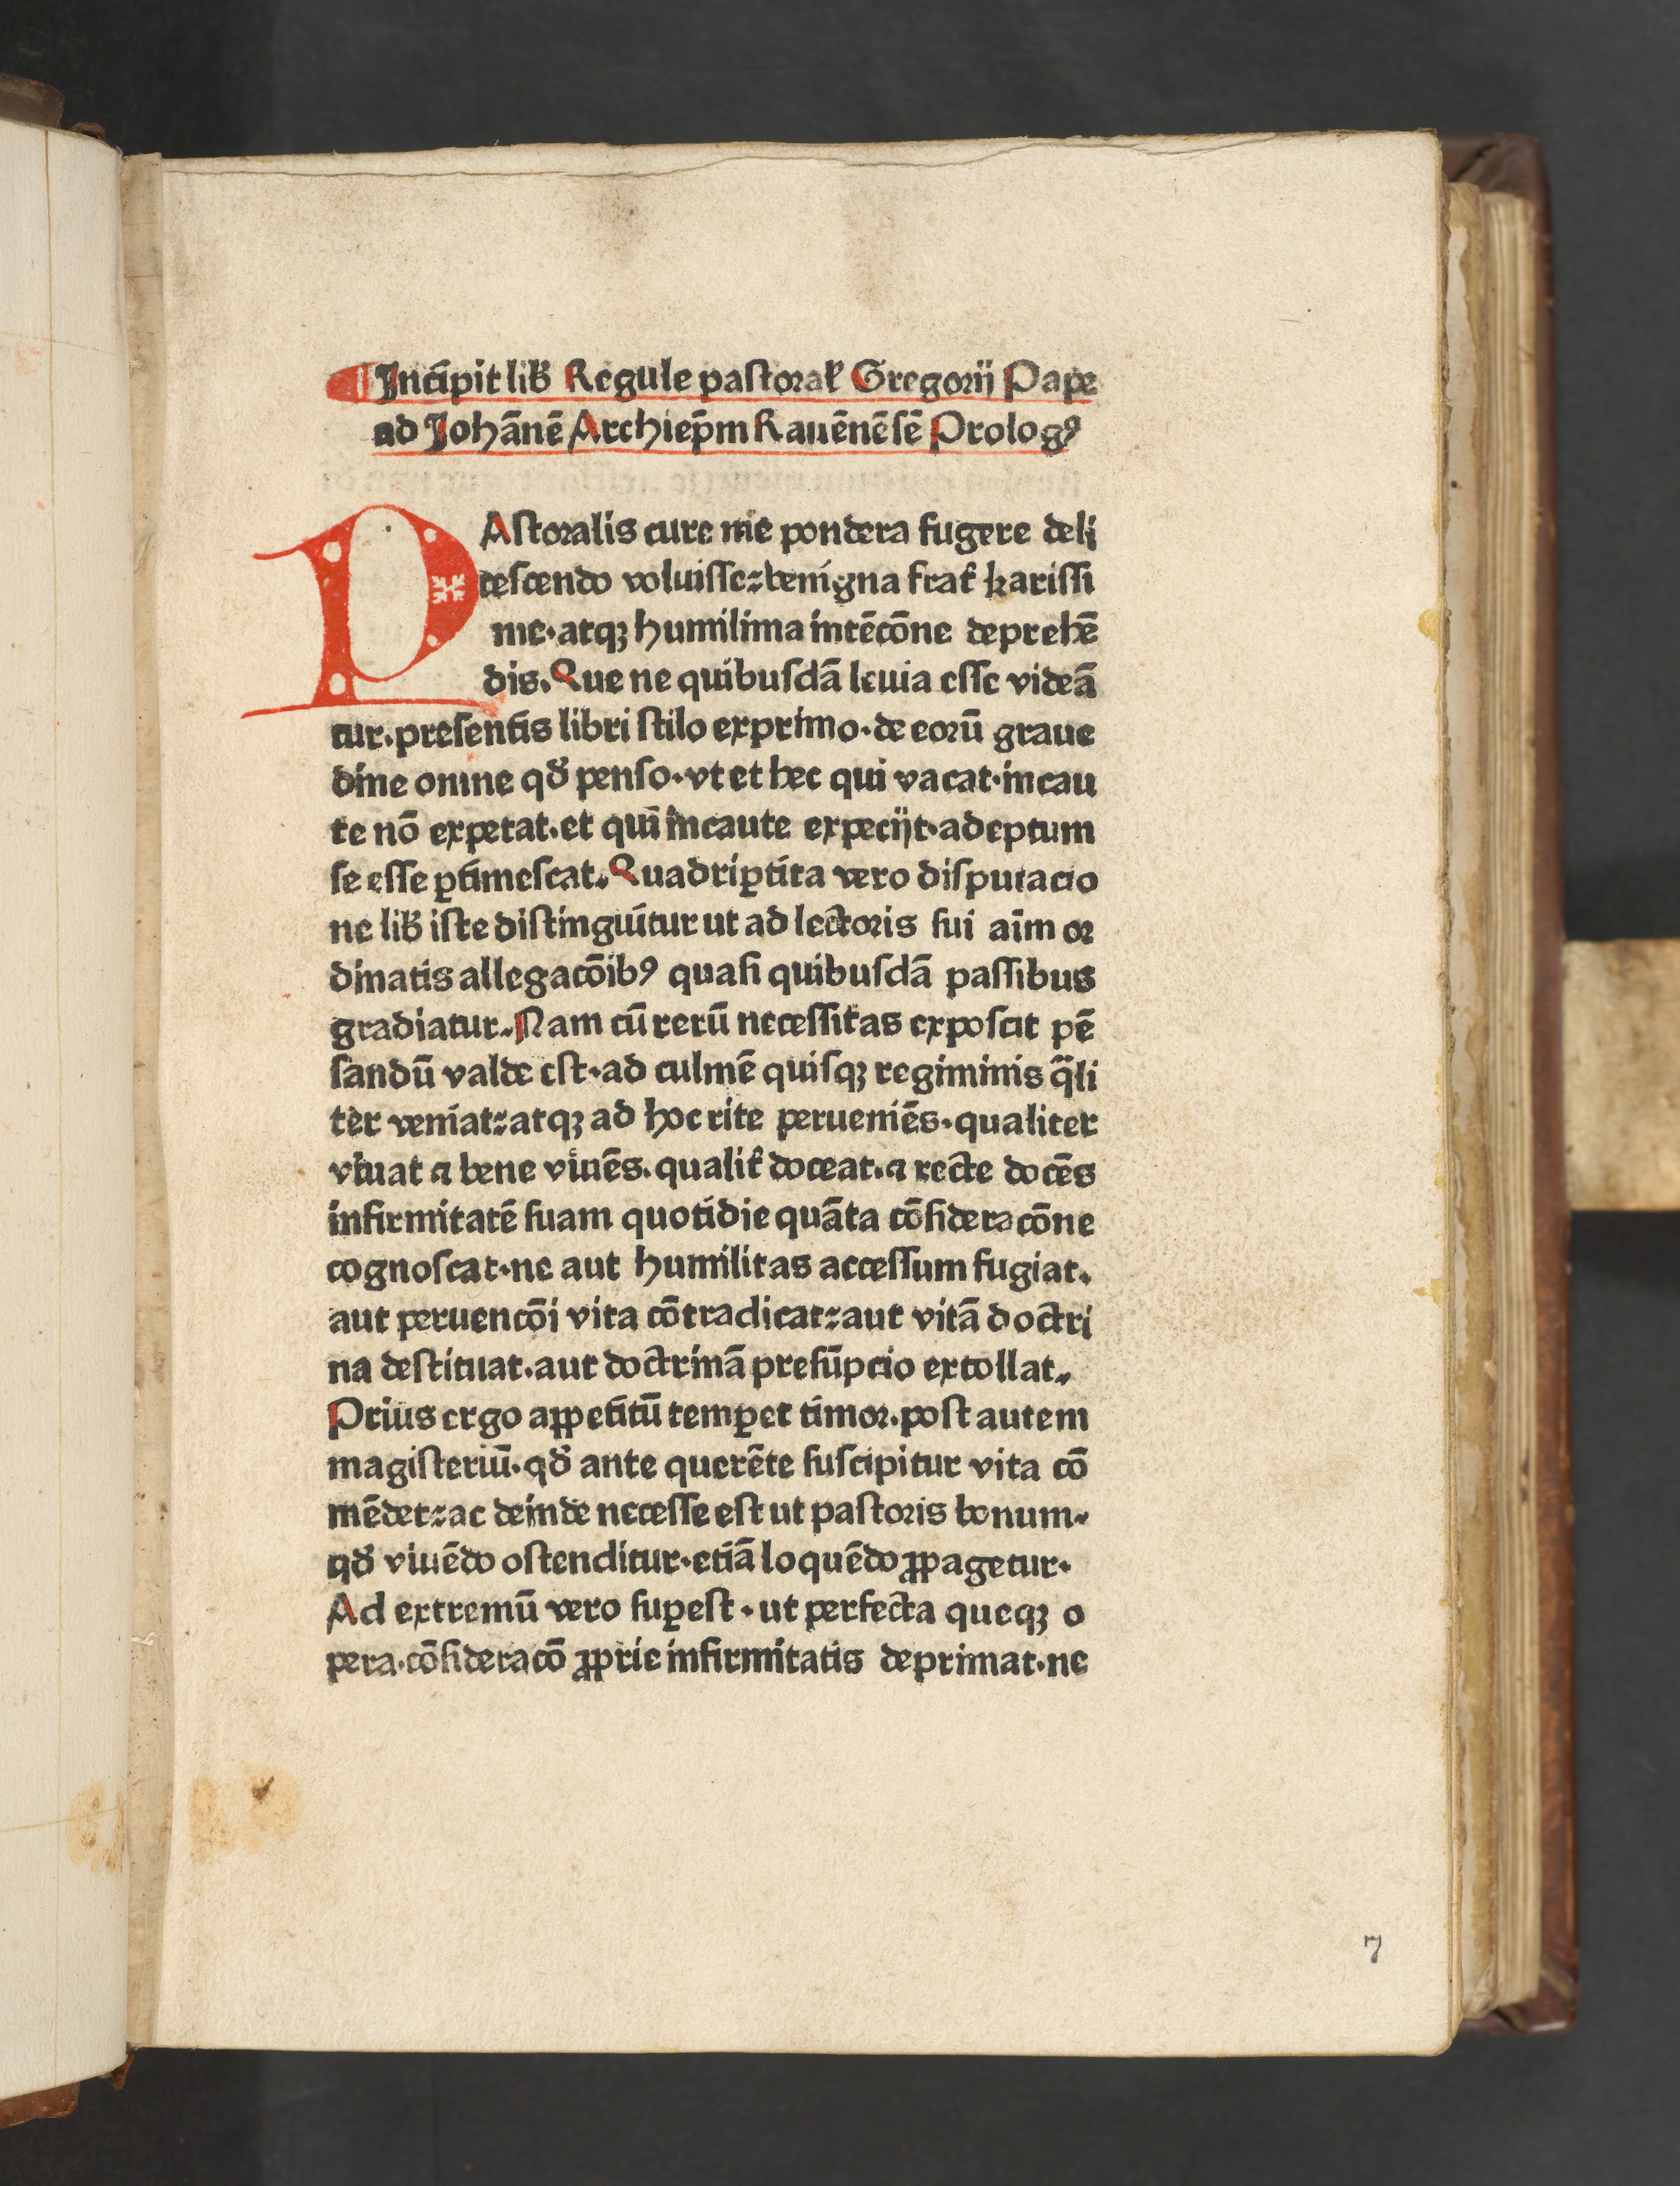 ¶ Incipit lib̄ Regule pastoral̓ Gregorij Pape
ad Johānē Archiep̄m Rauēnēsē Prologꝰ
PAstoralis cure me pondera fugere deli
tescendo voluisse: benigna frat̓ karissi
me· atqꝫ humilima intēcōne deprehē
dis. Que ne quibusdā leuia esse videā
tur. presentis libri stilo exprimo· de eorū graue
dine omne qd̓ penso· vt et hec qui vacat· incau
te nō expetat. et qui incaute expecijt· adeptum
se esse ꝑtimescat. Quadriꝑtita vero disputacio
ne lib̄ iste distinguitur ut ad lectoris sui aīm or
dinatis allegacōibꝰ quasi quibusdā passibus
gradiatur. Nam cū rerū necessitas exposcit pē
sandū valde est· ad culmē quisqꝫ regiminis q̄li
ter veniat: atqꝫ ad hoc rite perueniēs· qualiter
viuat ⁊ bene viuēs. qualit̓ doceat. ⁊ recte docēs
infirmitatē suam quotidie quāta cōsideracōne
cognoscat· ne aut humilitas accessum fugiat.
aut peruencōi vita cōtradicat: aut vitā doctri
na destituat. aut doctrinā presūpcio extollat.
Prius ergo appetitū temꝑet timor. post autem
magisteriū· qd̓ ante querēte suscipitur vita cō
mēdet: ac deinde necesse est ut pastoris bonum·
qd̓ viuēdo ostenditur· etiā loquēdo ꝓpagetur·
Ad extremū vero suꝑest · ut perfecta queqꝫ o
pera· cōsideracō ꝓprie infirmitatis deprimat· ne
7